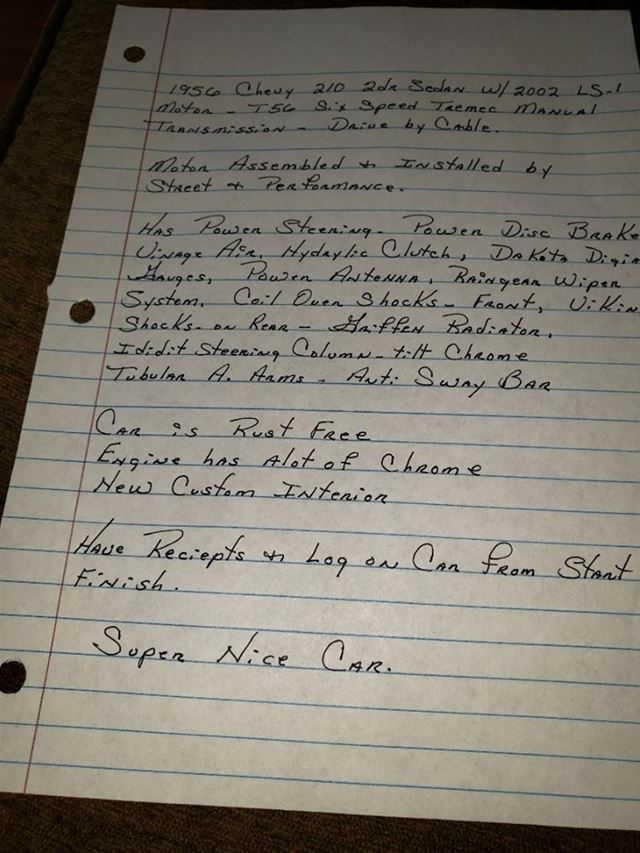 1956 Chevy 210 2dr Sedan w/ 2002 LS-1
Motor - T56 Six Speed Tremec Manual
Transmission - Drive by Cable.
Motor Assembled & Installed by
Street & Performance.
Has Power Steering - Power Disc Brake
Vinage Air, Hydraylic Clutch, Dakota Digia
Gauges, Power Antenna, Raingear Wiper
System, Coil Over Shocks - Front, Vikin
Shocks - on Rear - Griffen Radiator,
Ididit Steering Column - tilt Chrome
Tubular A. Arms - Anti Sway Bar
Car is Rust Free
Engine has Alot of Chrome
New Custom Interior
Have Reciepts & Log on Car from Start
Finish.
Super Nice Car.